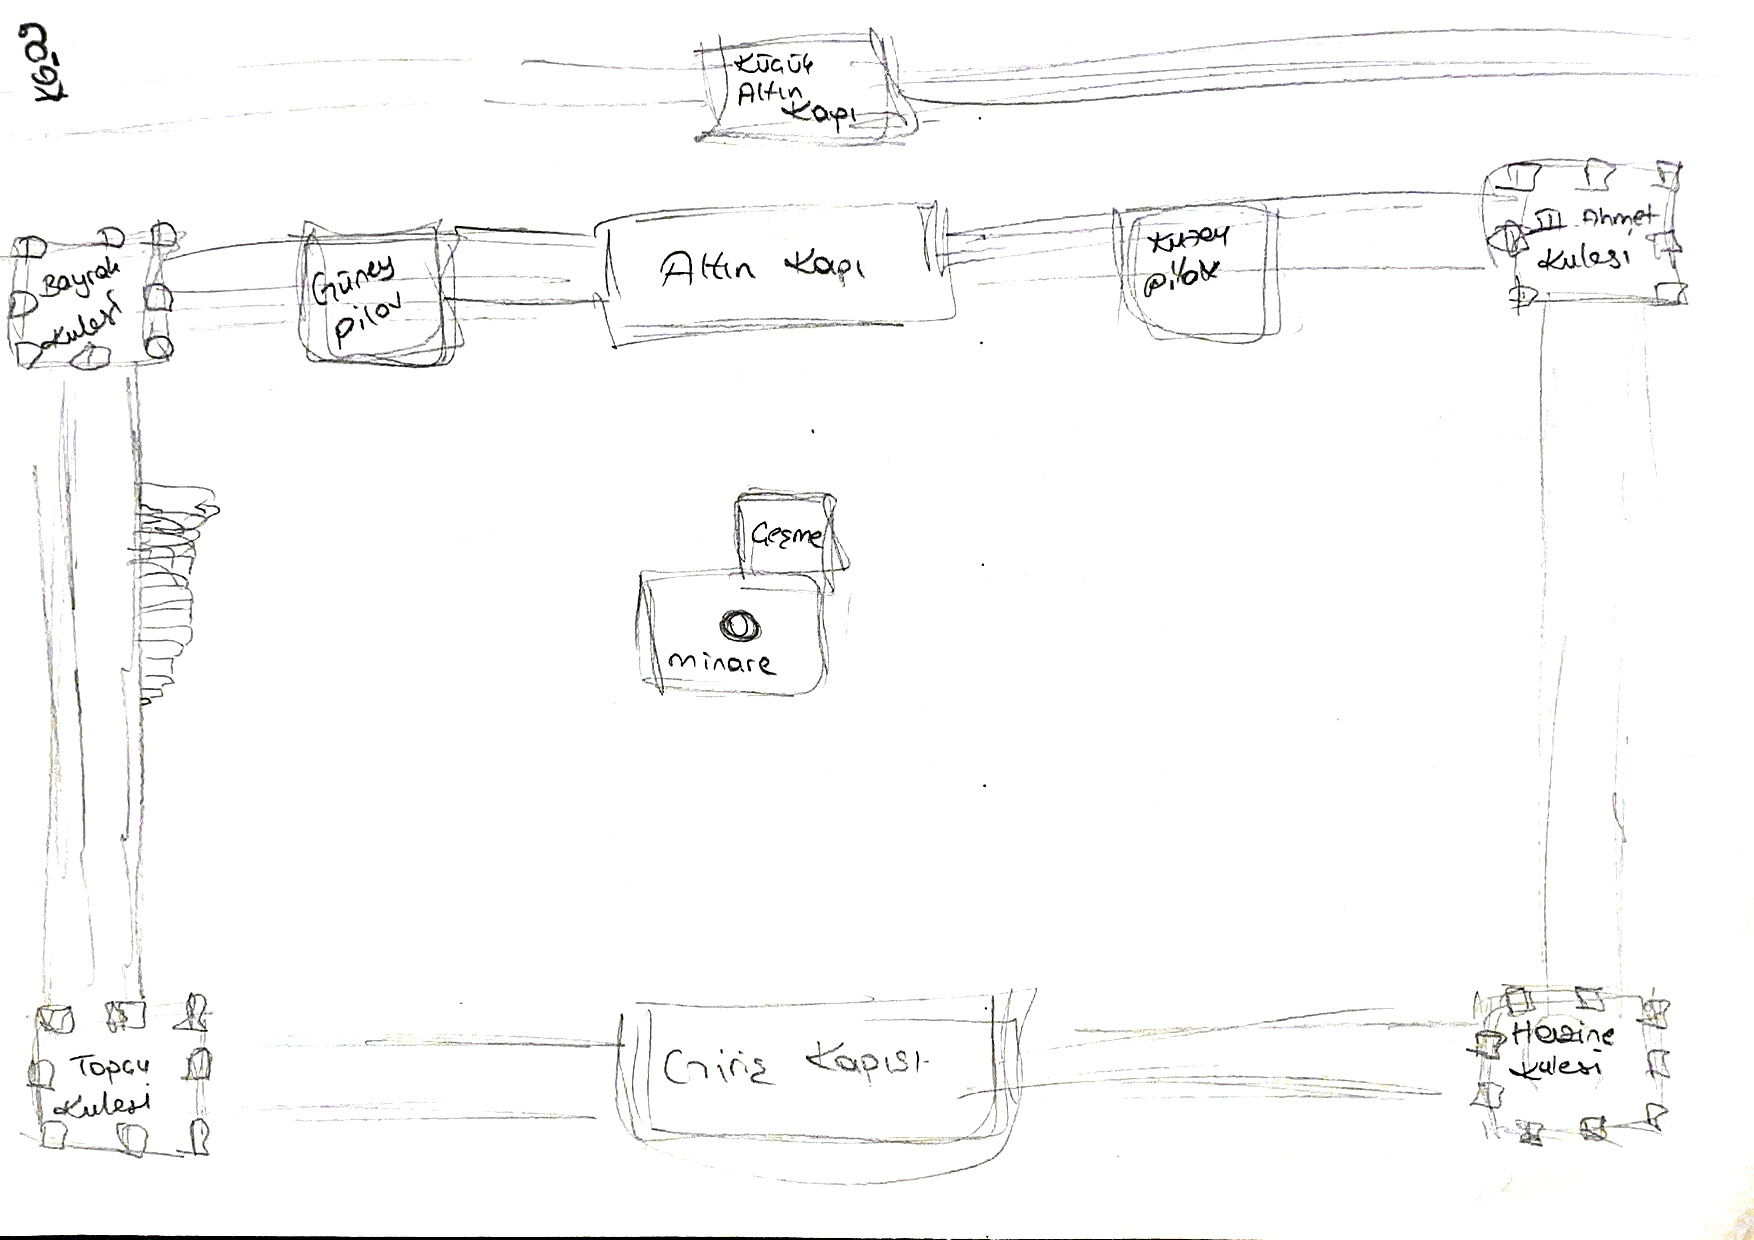 K6_09
Küçük
Altın
Kapı
Bayrak
Kulesi
Güney
Pilov
Altın Kapı
Kuzey
III. Ahmet
Kulesi
Çeşme
minare
Topçu
Kulesi
Giriş Kapısı
Hazine
Kulesi